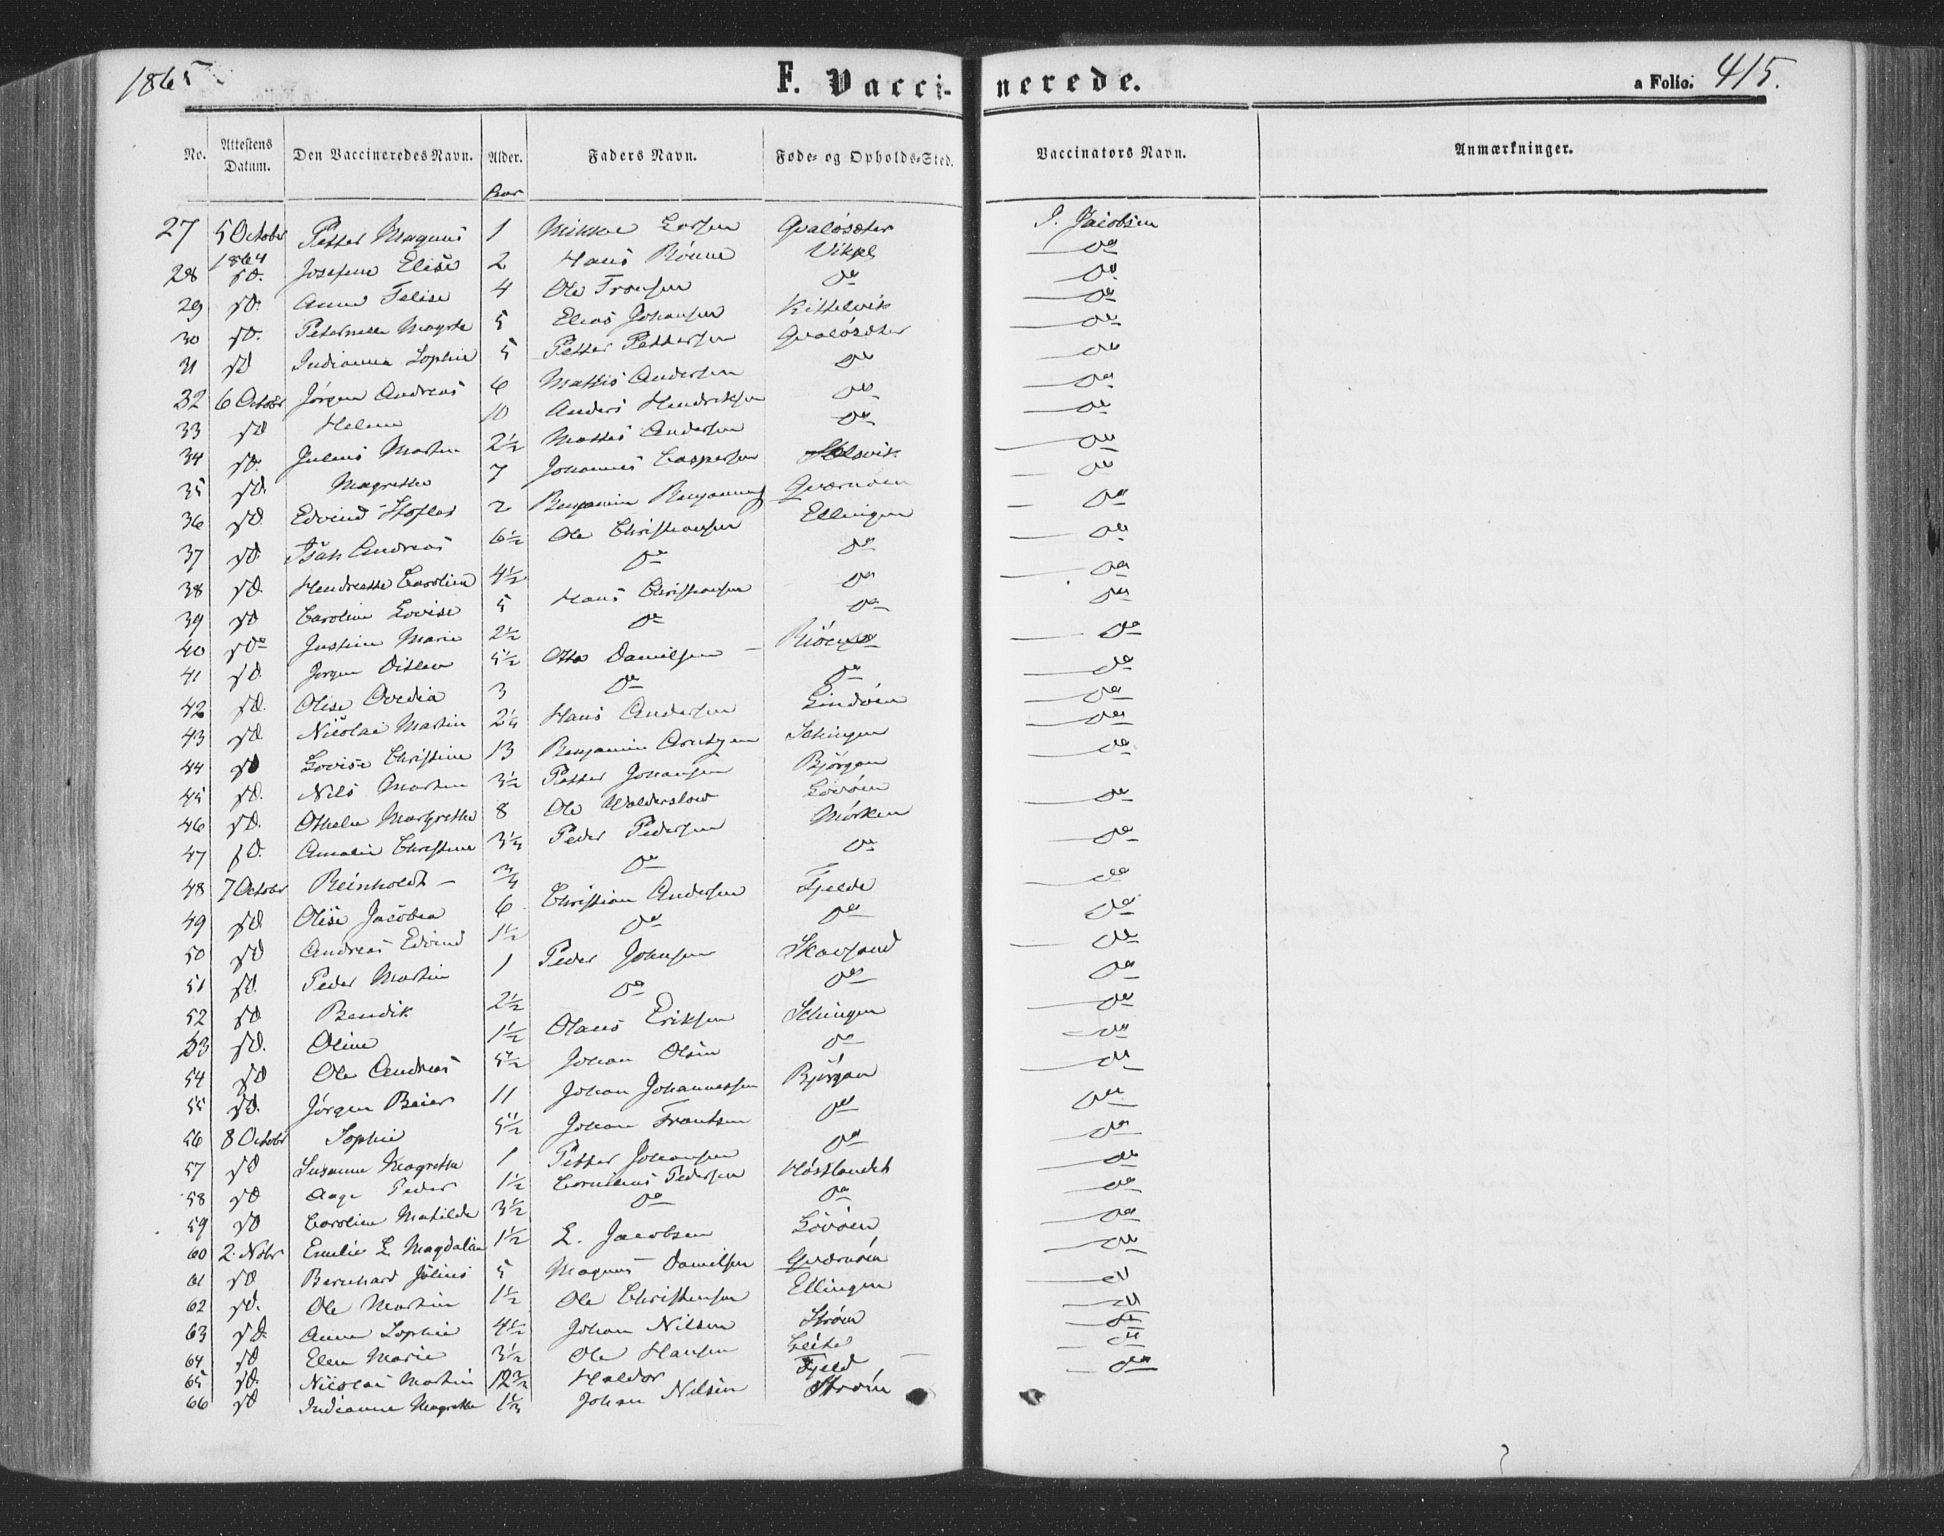 1865
F. Vaccinerede.
a Folio. 415.
No. Attestens Datum. Den Vaccineredes Navn. Alder. Faders Navn. Føde- og Opholds-Sted. Vaccinators Navn. Anmærkninger.
27 5 October 1864 Petter Magnus 1 Gvaløsæter J. Jacobsen
28 d. Josefine Elise 2 Hans Rønne do
29 d. Anne Felise 4 Ole do do
30 d. Peternelle 5 Elias Johansen Kittelvik do
31 d Indianna Sophie 5 Petter Pettersen Gvaløsæter do
32 6 October Jørgen Andreas 6 Mattis Andersen do do
33 d Helene 10 Anders Hendriksen do do
34 d. Julius Martin 2½ Mattis Andersen do do
35 d. Magrethe 7 Johannes Caspersen do
36 d. Edvind 2 Benjamin Gværnøen do
37 d. Isak Andreas 6½ Ole Christiansen Ellingen do
38 d. Carolina 4½ do do do
39 d Caroline Lovise 5 Hans Christiansen do do
40 do Justine Marie 2½ do do do
41 d. Jørgen Ditlev 5½ Otto Danielsen do
42 d. Olise Ovedia 3 do do do
43 d. Nicolai Martin 2¼ Hans Andersen Lindøen do
44 d Lovise Christine 13 Benjamin do
45 d. Nils Martin 3½ Petter Johansen Bjørgan do
46 d. Margrethe 8 Ole Lovøen do
47 d. Amalie Christine 3¼ Peder Pedersen Mørken do
48 7 October Reinholdt 3/4 do do do
49 d. Olise Jacobea 6 Christian Andersen Fjelde do
50 d Andreas Edvind 1½ do do do
51 d. Peder Martin 1 Peder Johnsen do
52 d Bendik 2½ do do do
53 d. Oline 1½ Olaus Eriksen do
54 d Ole Andreas 5½ Johan Olsen do do
55 d. Jørgen Beier 11 Johan Johannessen Bjørgan do
56 8 Octobr Sophie 5½ Johan Frantsen do do
57 d Susanne Magrethe 1 Petter Johansen do do
58 d Aage Peder 1½ Cornelius Pedersen Høstlandet do
59 d Caroline Matilde 3½ do do do
60 2. Nobr Emilie E. Magdalina 1½ E. Jacobsen Lovøen do
61 d Bernhard Jølius 5 Magnus Danielsen Gværnøen do
62 d. Ole Martin 1½ Ole Christensen Ellingen do
63 d. Anna Sophie 4½ Johan Nilsen Strøm do
64 d Elen Marie 3½ Ole Hansen do
65 d. Nicolai Martin Haldor Fjeld do
66 d Indianne Magrethe Johan Nilsen Strøm do